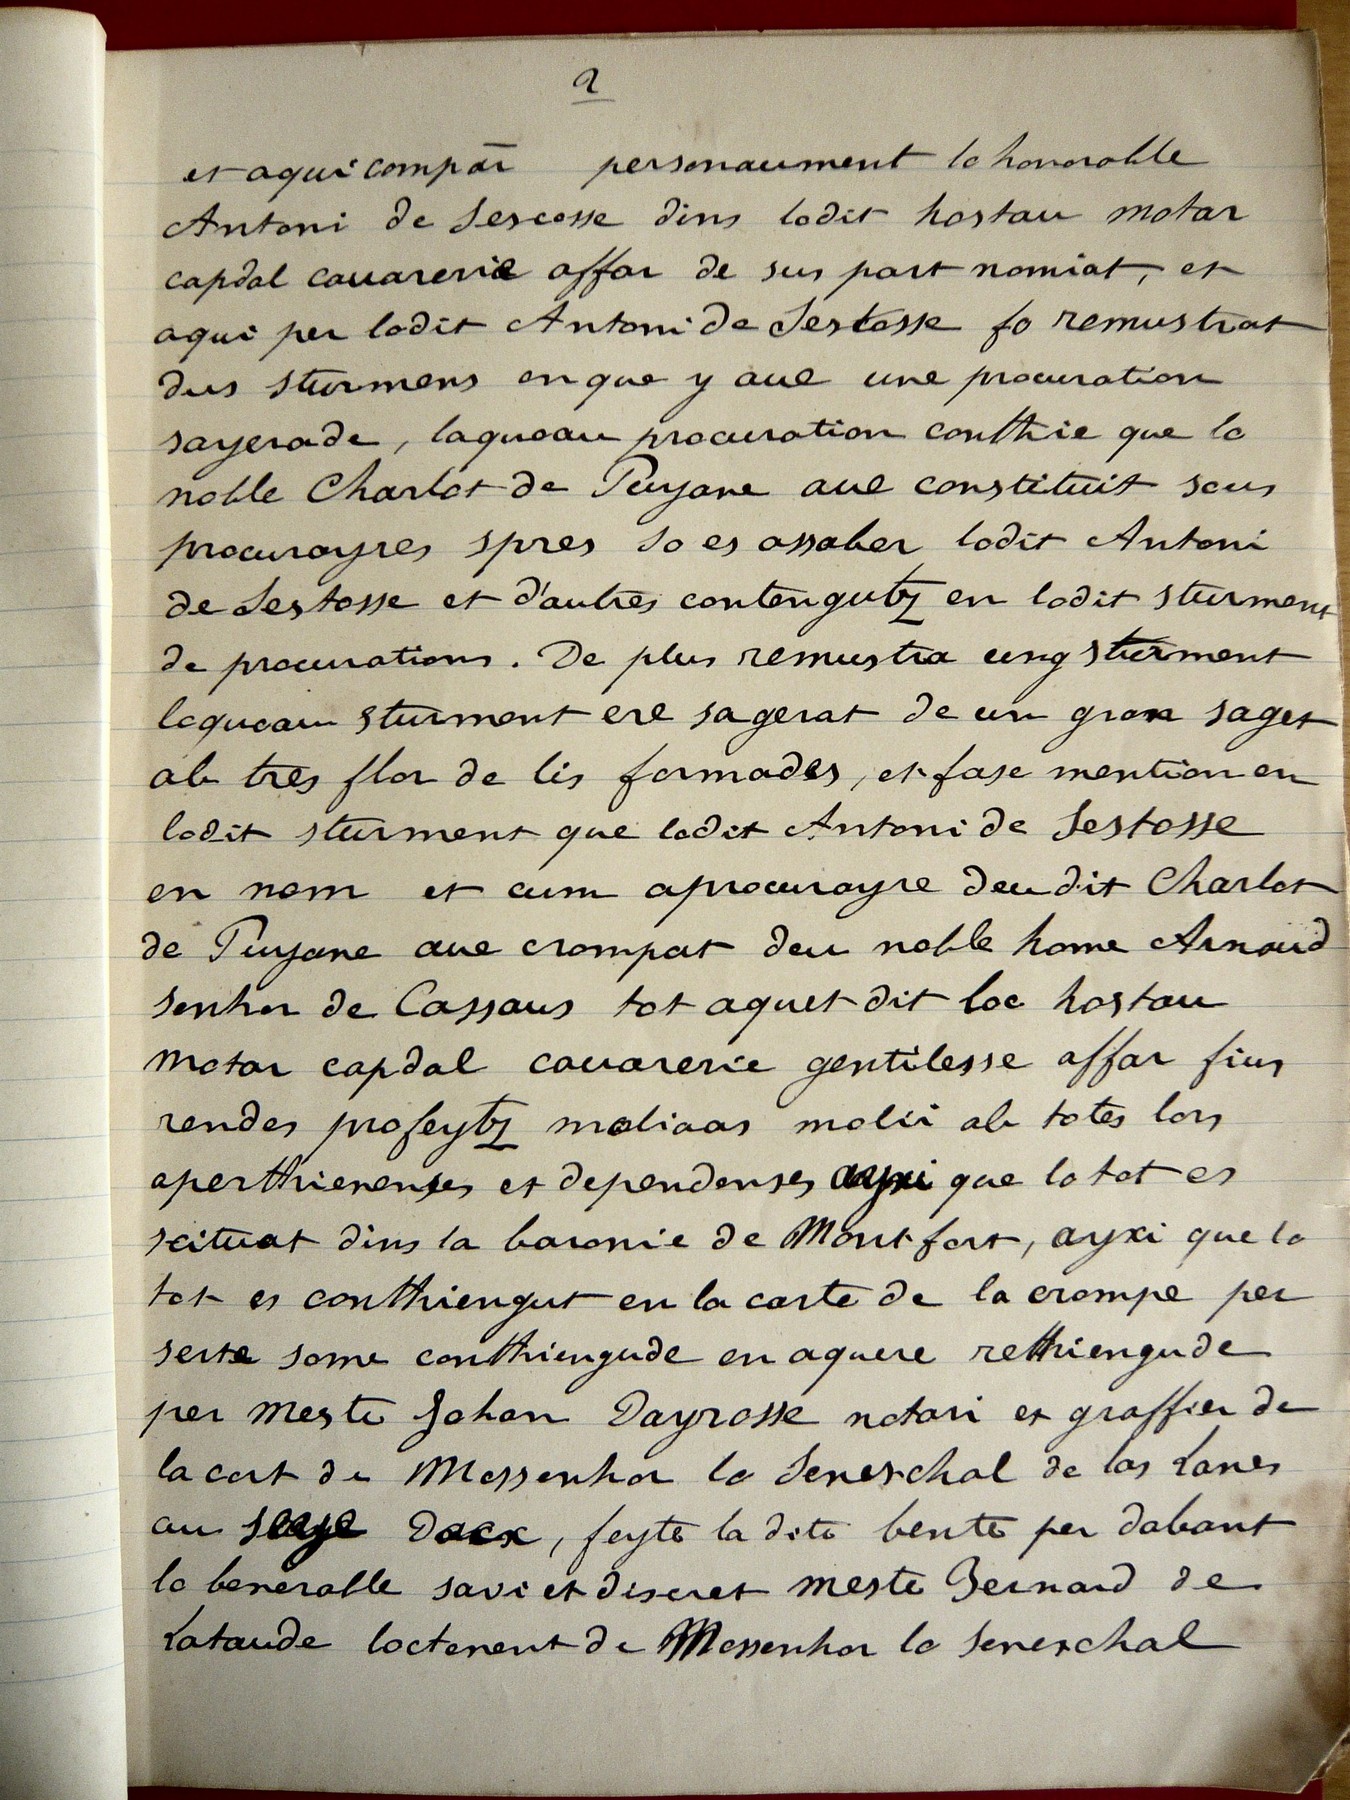 2
et aqui compar personaument lo honorable
Antoni de Sescosse dins lodit hostau motar
capdal cauarerie affar de sus part nomiat, et
aqui per lodit Antoni de Sestosse fo remustrat
dus sturmens en que y aue une procuration
sagerade, laquoau procuration conthie que lo
noble Charlot de Puyane aue constituit sous
procurayres spres so es assaber lodit Antoni
de Sestosse et d'autres contengutz en lodit sturment
de procurations. De plus remustra ung sturment
loquoau sturment ere sagerat de un gran saget
ab tres flor de lis formades, et fase mention en
lodit sturment que lodit Antoni de Sestosse
en nom et cum a procurayre deu dit Charlot
de Puyane aue crompat deu noble home Arnaud
senhor de Cassaus tot aquet dit loc hostau
motar capdal cauarerie gentilesse affar fius
rendes profeytz moliaas molii ab totes lors
aperthienenses et dependenses ayxi que lo tot es
scituat dins la baronie de Montfort, ayxi que lo
tot es conthiengut en la carte de la crompe per
serte some conthiengude en aquere rethiengude
per meste Johan Dayrosse notari et graffier de
la cort de Mossenhor lo Seneschal de las Lanes
au seye Dacx, feyte la dite bente per dabant
lo benerable savi et discret meste Bernard de
Lataude loctenent de Mossenhor lo seneschal